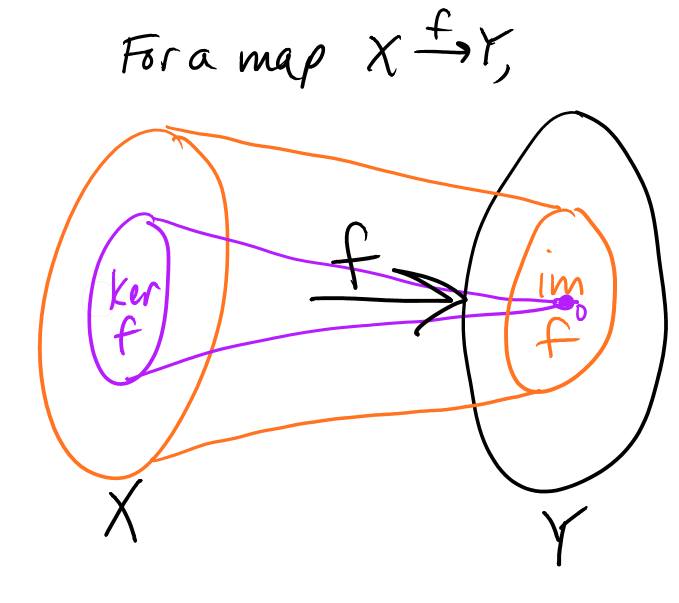 For a map X $\xrightarrow{f}$ Y,
f
ker
f
im
0
f
X
Y